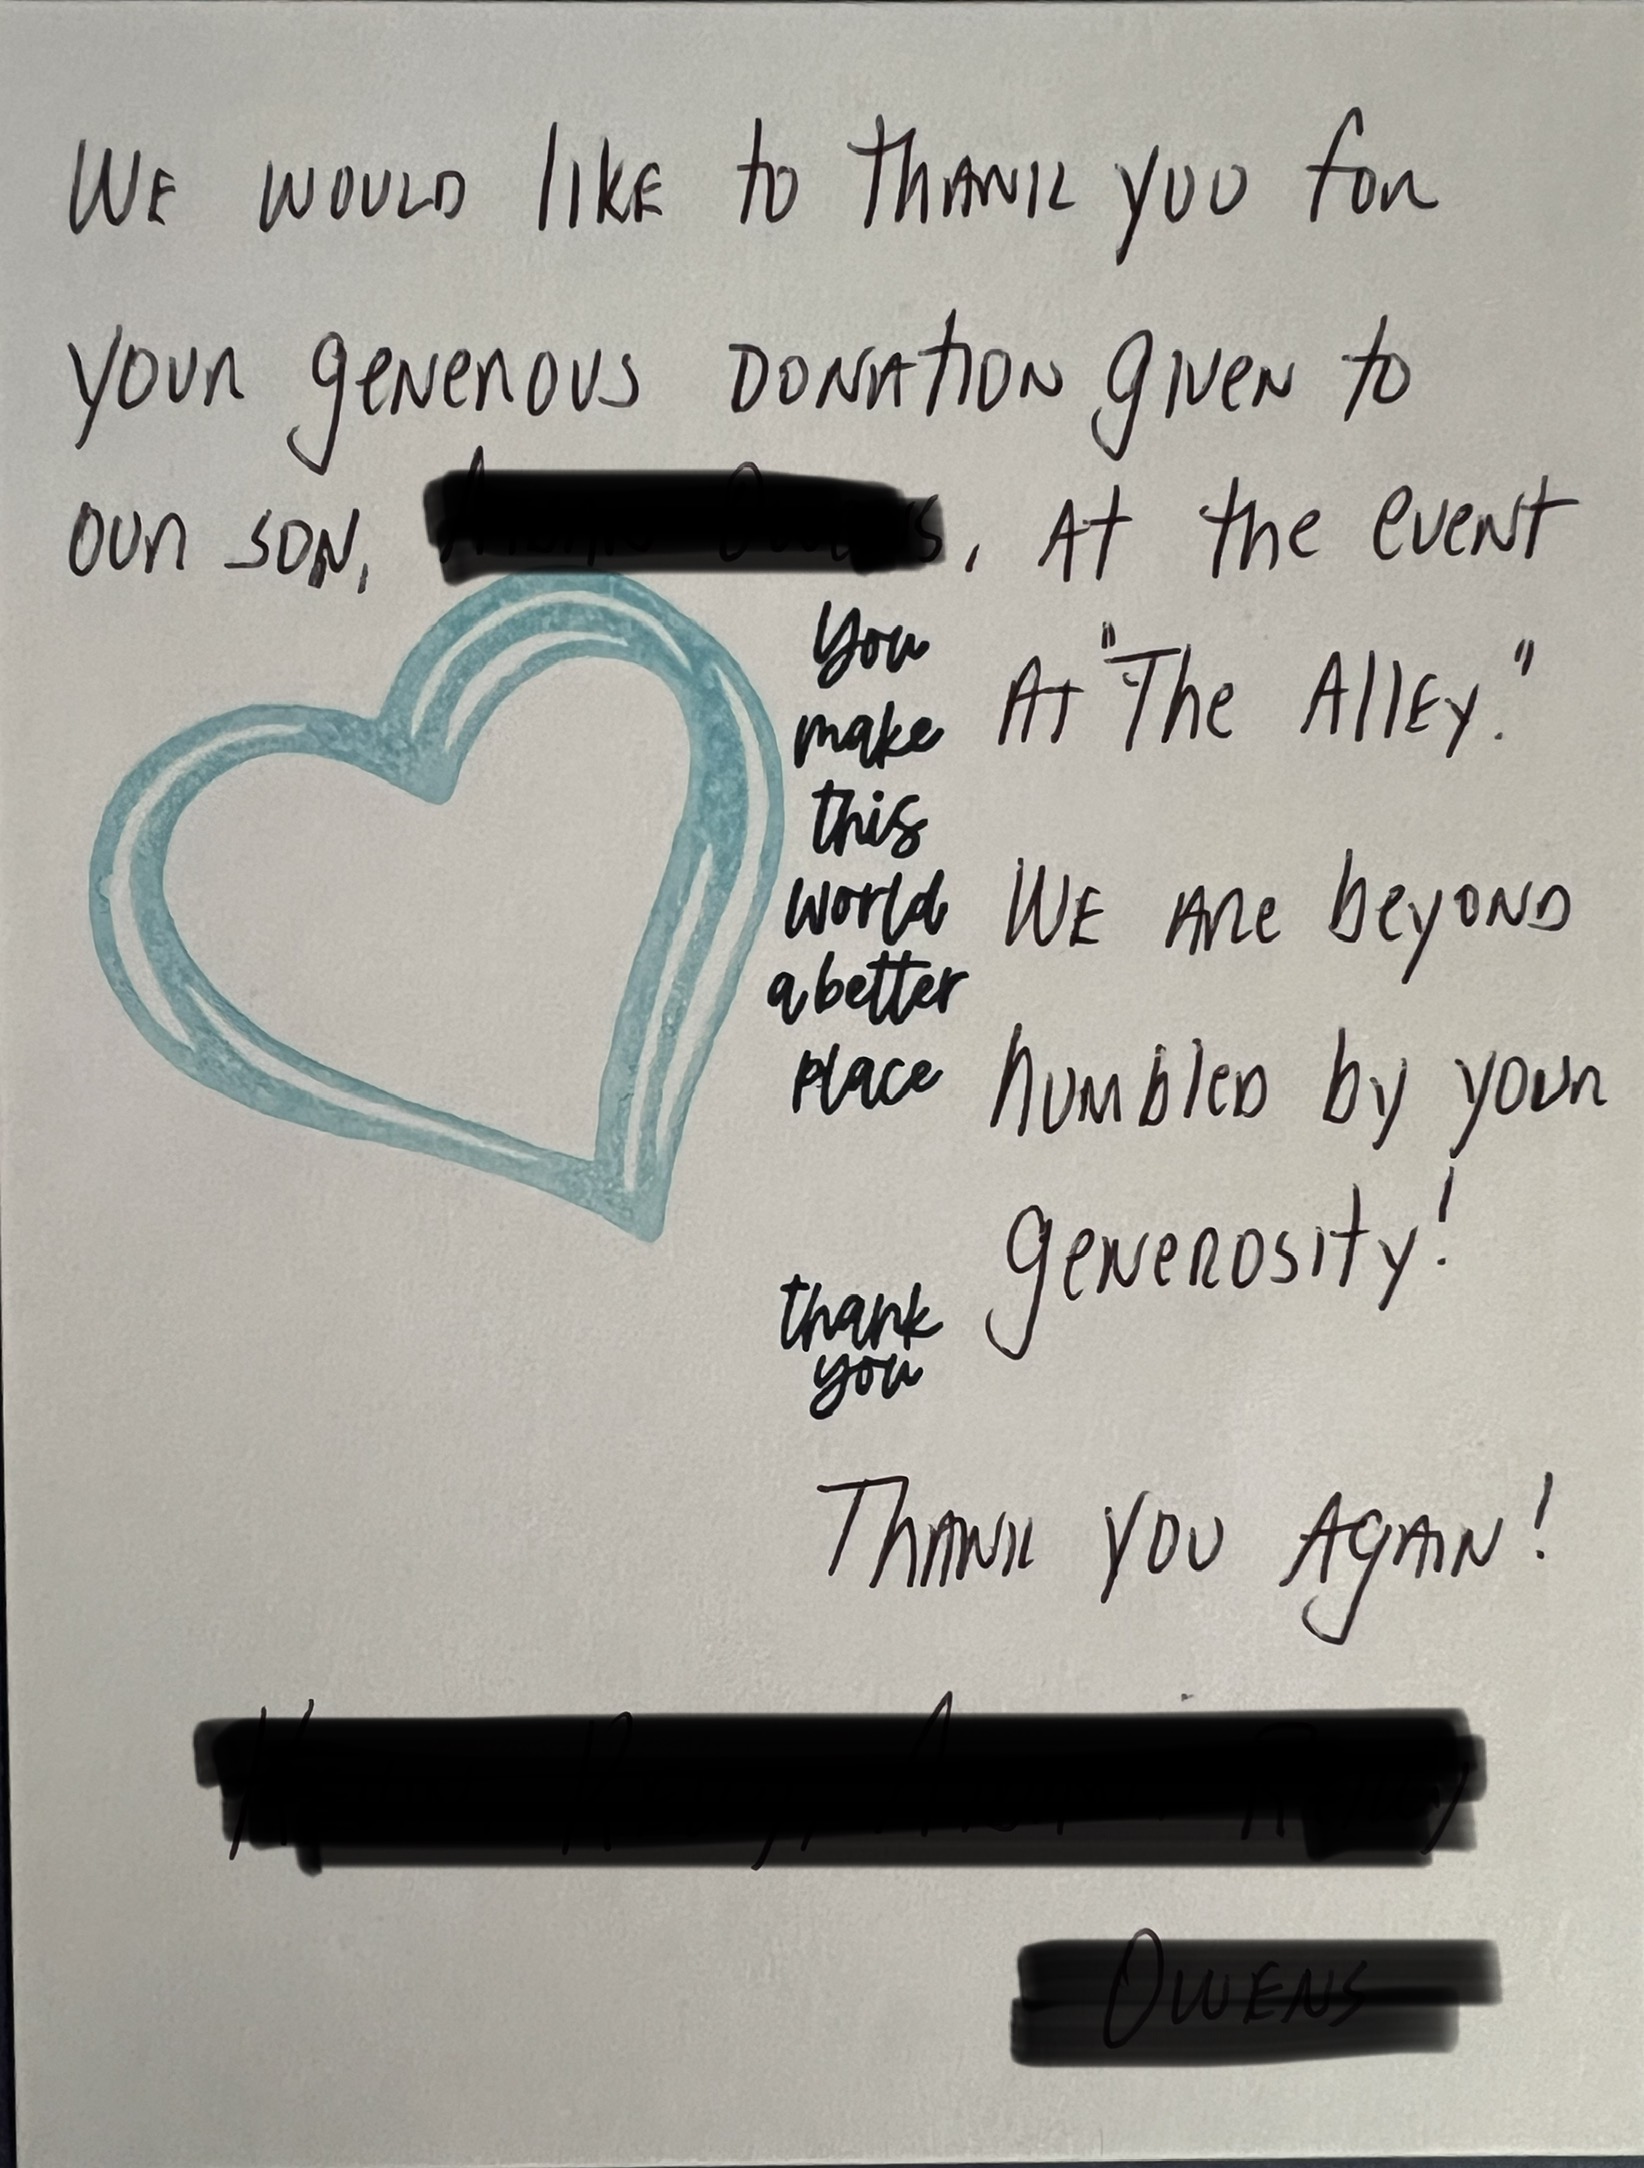 WE WOULD likE to THANK you for
your generous DONATION given to
our SON, , At the event
At "The AllEy."
WE Are beyOND
humbleD by your
generosity!
You
make
this
world
a better
place
thank
you
THANK YOU AgAIN!